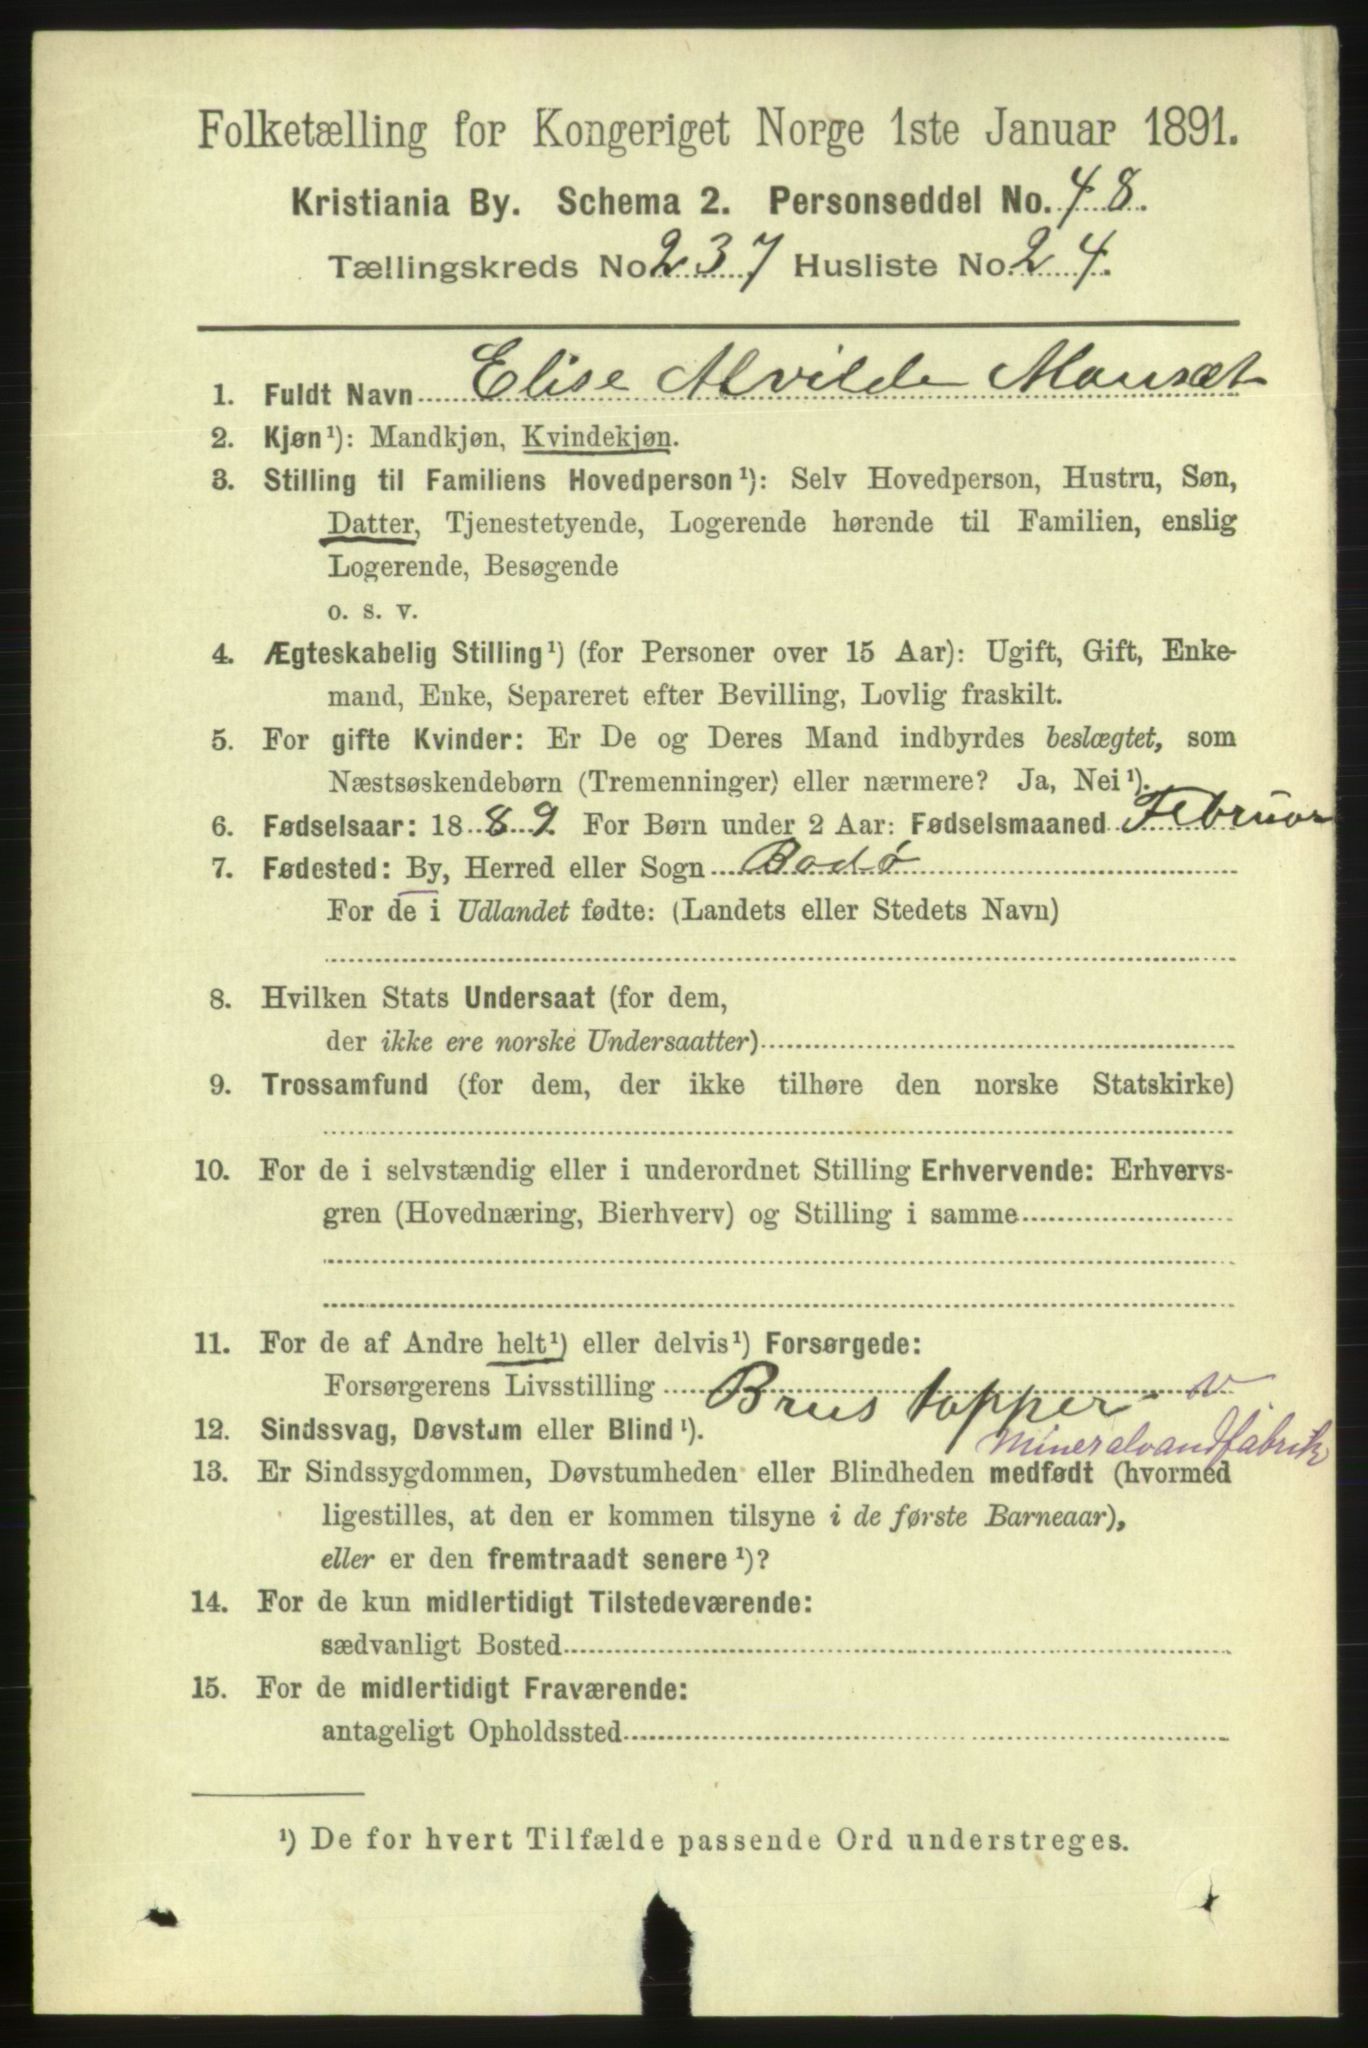 Folketælling for Kongeriget Norge 1ste Januar 1891.
Kristiania By. Schema 2. Personseddel No. 48.
Tællingskreds No 237 Husliste No. 24.
1. Fuldt Navn Elise Alvilde Mansæt
2. Kjøn¹): Mandkjøn, Kvindekjøn.
3. Stilling til Familiens Hovedperson¹): Selv Hovedperson, Hustru, Søn,
Datter, Tjenestetyende, Logerende hørende til Familien, enslig
Logerende, Besøgende
o. s. v.
4. Ægteskabelig Stilling¹) (for Personer over 15 Aar): Ugift, Gift, Enke-
mand, Enke, Separeret efter Bevilling, Lovlig fraskilt.
5. For gifte Kvinder: Er De og Deres Mand indbyrdes beslægtet, som
Næstsøskendebørn (Tremenninger) eller nærmere? Ja, Nei¹).
6. Fødselsaar: 1889 For Børn under 2 Aar: Fødselsmaaned Februar
7. Fødested: By, Herred eller Sogn Bodø
For de i Udlandet fødte: (Landets eller Stedets Navn)
8. Hvilken Stats Undersaat (for dem,
der ikke ere norske Undersaatter)
9. Trossamfund (for dem, der ikke tilhøre den norske Statskirke)
10. For de i selvstændig eller i underordnet Stilling Erhvervende: Erhvervs-
gren (Hovednæring, Bierhverv) og Stilling i samme
11. For de af Andre helt¹) eller delvis¹) Forsørgede:
Forsørgerens Livsstilling Brus tapper v
mineralvandfabrik
12. Sindssvag, Døvstum eller Blind¹).
13. Er Sindssygdommen, Døvstumheden eller Blindheden medfødt (hvormed
ligestilles, at den er kommen tilsyne i de første Barneaar),
eller er den fremtraadt senere¹)?
14. For de kun midlertidigt Tilstedeværende:
sædvanligt Bosted
15. For de midlertidigt Fraværende:
antageligt Opholdssted
¹) De for hvert Tilfælde passende Ord understreges.